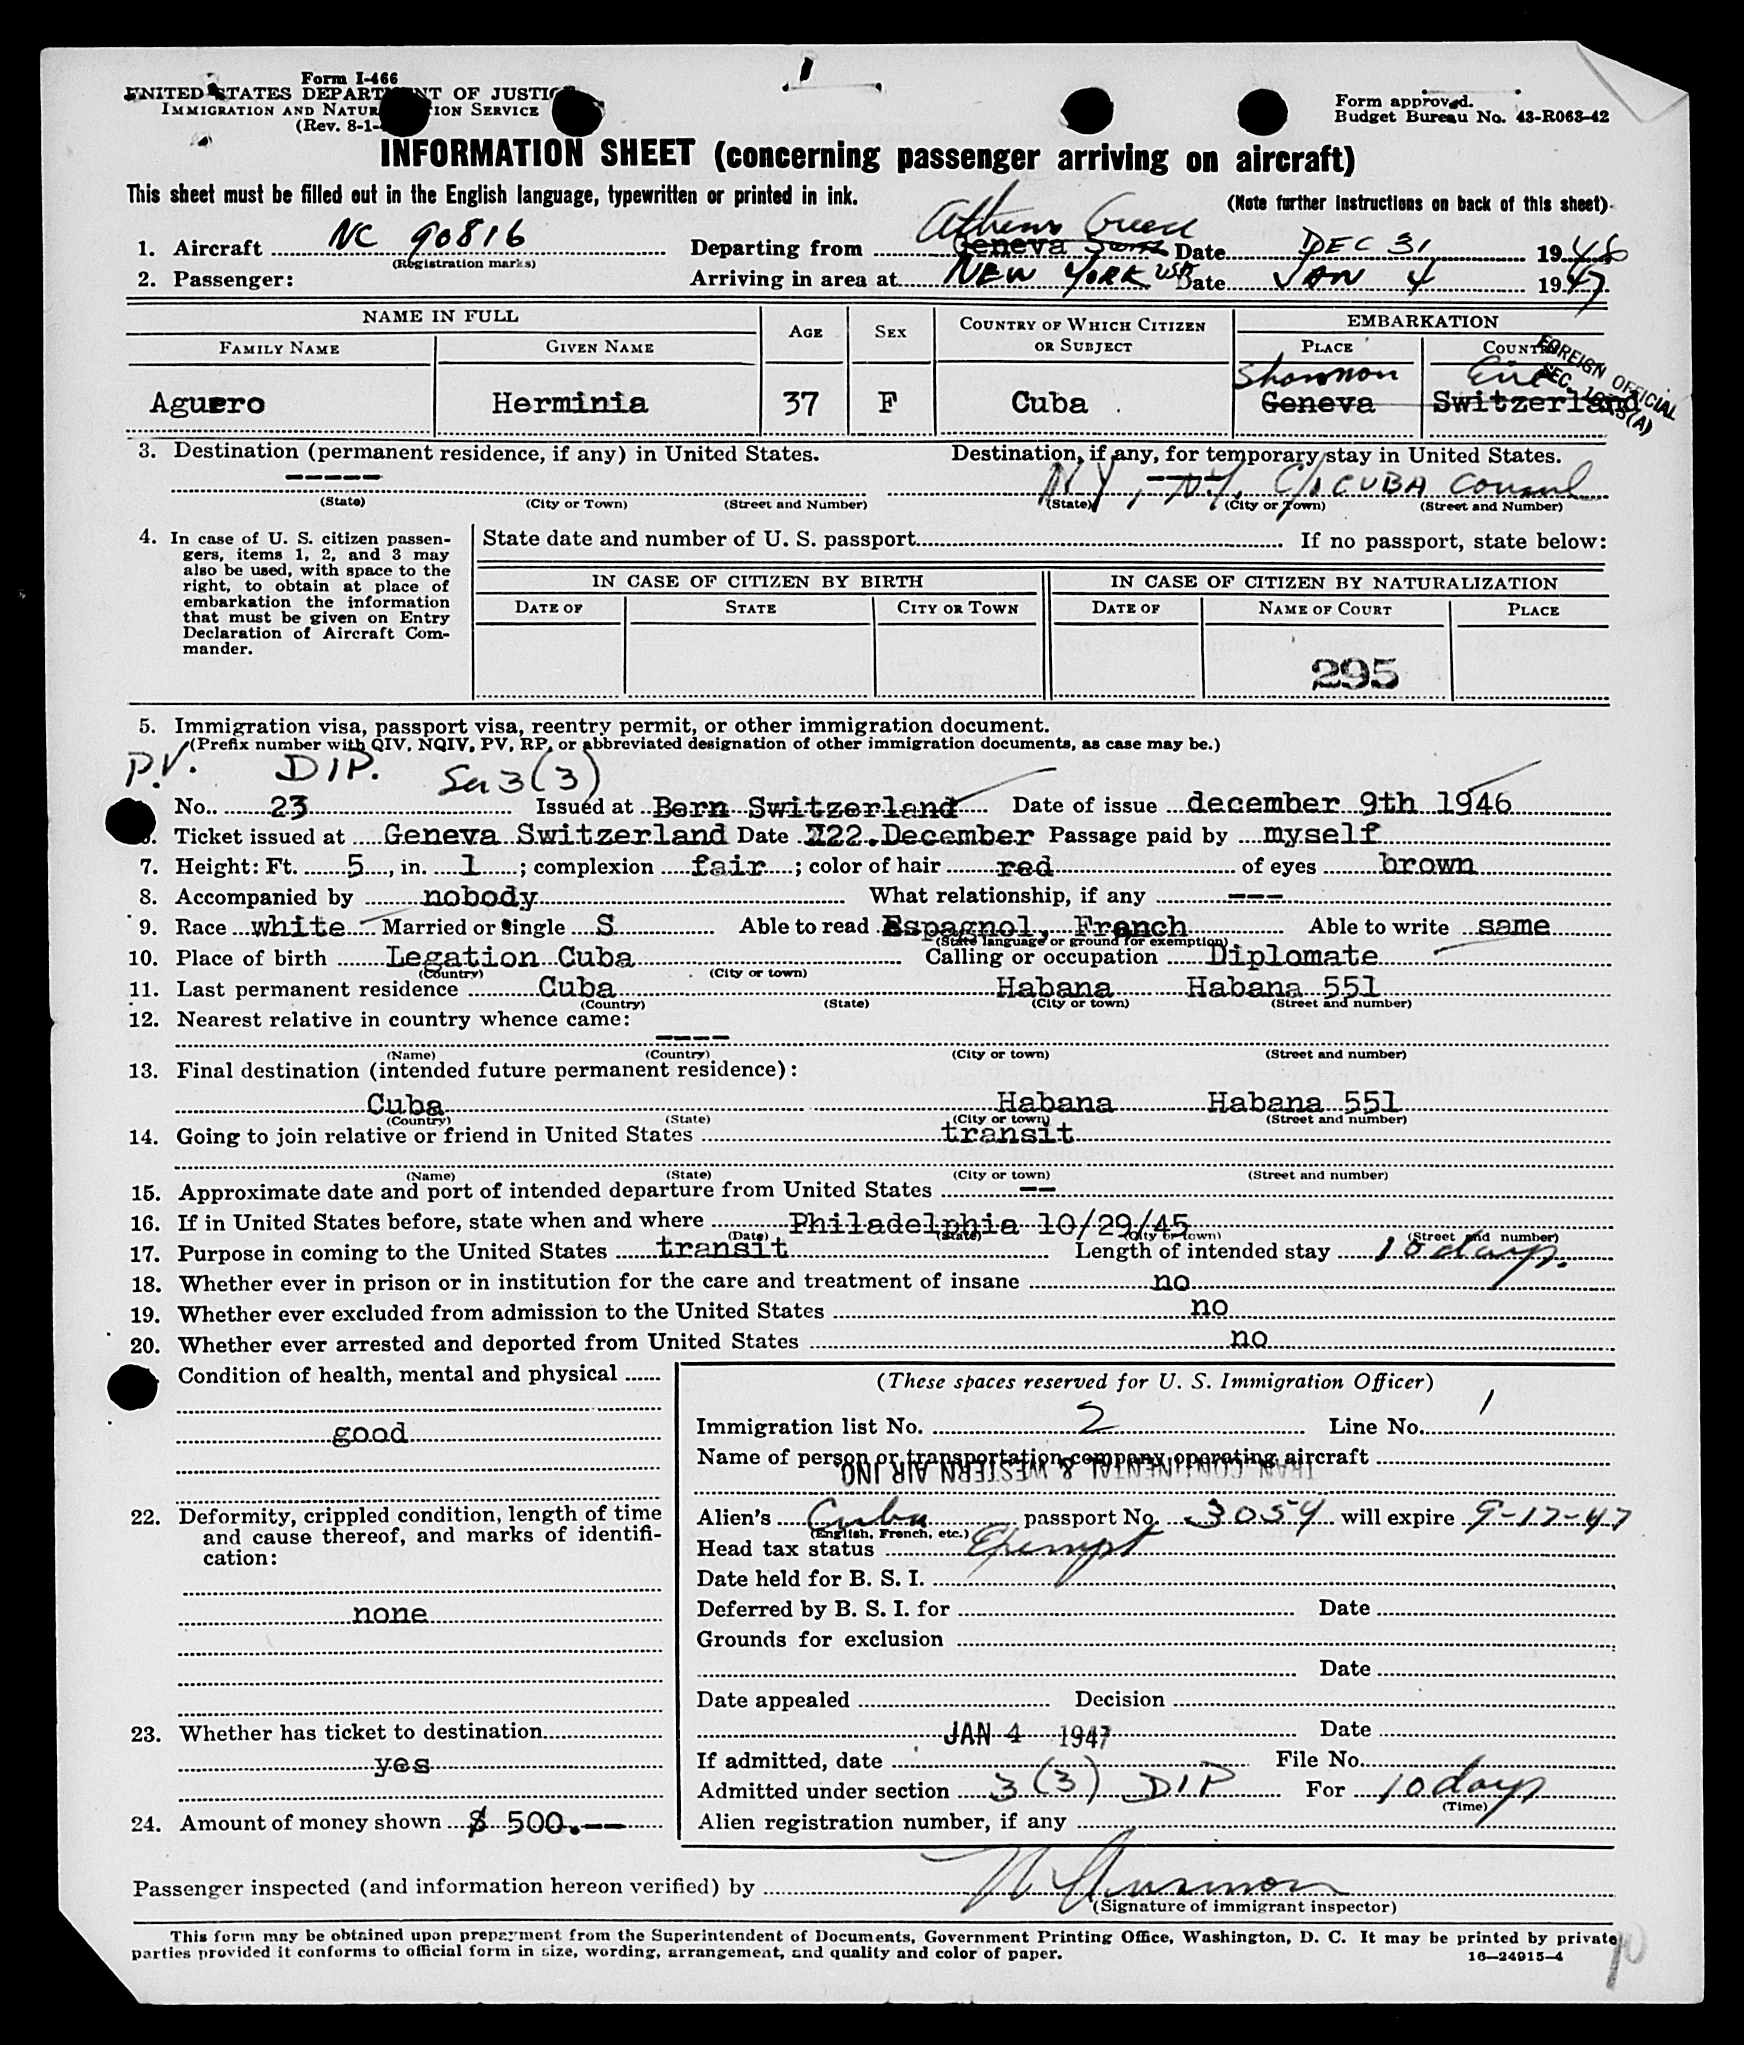 Form I-466
UNITED STATES DEPARTMENT OF JUSTICE
IMMIGRATION AND NATURALIZATION SERVICE
(Rev. 8-1-
Form approved.
Budget Bureau No. 43-R068-42
INFORMATION SHEET (concerning passenger arriving on aircraft)
This sheet must be filled out in the English language, typewritten or printed in ink.
(Note further instructions on back of this sheet)
Athens Greece
1. Aircraft NC 90816 Departing from Geneva Date DEC 31 1946
(Registration marks)
2. Passenger: Arriving in area at NEW YORK USA Date JAN 4 1947
NAME IN FULL AGE SEX COUNTRY OF WHICH CITIZEN OR SUBJECT EMBARKATION
FAMILY NAME GIVEN NAME PLACE COUNTRY
FOREIGN OFFICIAL
Shannon Eire
Aguero Herminia 37 F Cuba Geneva Switzerland
3. Destination (permanent residence, if any) in United States. Destination, if any, for temporary stay in United States.
----- NY, NY, C/o CUBA Consul
(State) (City or Town) (Street and Number) (State) (City or Town) (Street and Number)
4. In case of U. S. citizen passengers, items 1, 2, and 3 may also be used, with space to the right, to obtain at place of embarkation the information that must be given on Entry Declaration of Aircraft Commander.
State date and number of U. S. passport If no passport, state below:
IN CASE OF CITIZEN BY BIRTH IN CASE OF CITIZEN BY NATURALIZATION
DATE OF STATE CITY OR TOWN DATE OF NAME OF COURT PLACE
295
5. Immigration visa, passport visa, reentry permit, or other immigration document.
(Prefix number with QIV, NQIV, PV, RP, or abbreviated designation of other immigration documents, as case may be.)
P.V. DIP. Sec 3(3)
No. 23 Issued at Bern Switzerland Date of issue december 9th 1946
Ticket issued at Geneva Switzerland Date 22.December Passage paid by myself
7. Height: Ft. 5, in. 1; complexion fair; color of hair red of eyes brown
8. Accompanied by nobody What relationship, if any ---
9. Race white Married or Single S Able to read Espagnol, French Able to write same
(State language or ground for exemption)
10. Place of birth Legation Cuba Calling or occupation Diplomate
(Country) (City or town)
11. Last permanent residence Cuba Habana Habana 551
(Country) (State) (City or town) (Street and number)
12. Nearest relative in country whence came:
----
(Name) (Country) (City or town) (Street and number)
13. Final destination (intended future permanent residence):
Cuba Habana Habana 551
(Country) (State) (City or town) (Street and number)
14. Going to join relative or friend in United States transit
(Name) (State) (City or town) (Street and number)
15. Approximate date and port of intended departure from United States --
16. If in United States before, state when and where Philadelphia 10/29/45
(Date) (State) (City or town) (Street and number)
17. Purpose in coming to the United States transit Length of intended stay 10 days.
18. Whether ever in prison or in institution for the care and treatment of insane no
19. Whether ever excluded from admission to the United States no
20. Whether ever arrested and deported from United States no
Condition of health, mental and physical
good
22. Deformity, crippled condition, length of time and cause thereof, and marks of identification:
none
23. Whether has ticket to destination
yes
24. Amount of money shown $ 500.--
(These spaces reserved for U. S. Immigration Officer)
Immigration list No. 2 Line No. 1
Name of person or transportation company operating aircraft
TRANSCONTINENTAL & WESTERN AIR INC
Alien's Cuba passport No. 3054 will expire 9-17-47
(English, French, etc.)
Head tax status Exempt
Date held for B. S. I.
Deferred by B. S. I. for Date
Grounds for exclusion
Date
Date appealed Decision
Date
JAN 4 1947
If admitted, date File No.
Admitted under section 3(3) DIP For 10 days
(Time)
Alien registration number, if any
Passenger inspected (and information hereon verified) by
(Signature of immigrant inspector)
This form may be obtained upon prepayment from the Superintendent of Documents, Government Printing Office, Washington, D. C. It may be printed by private
parties provided it conforms to official form in size, wording, arrangement, and quality and color of paper.
16—24915-4